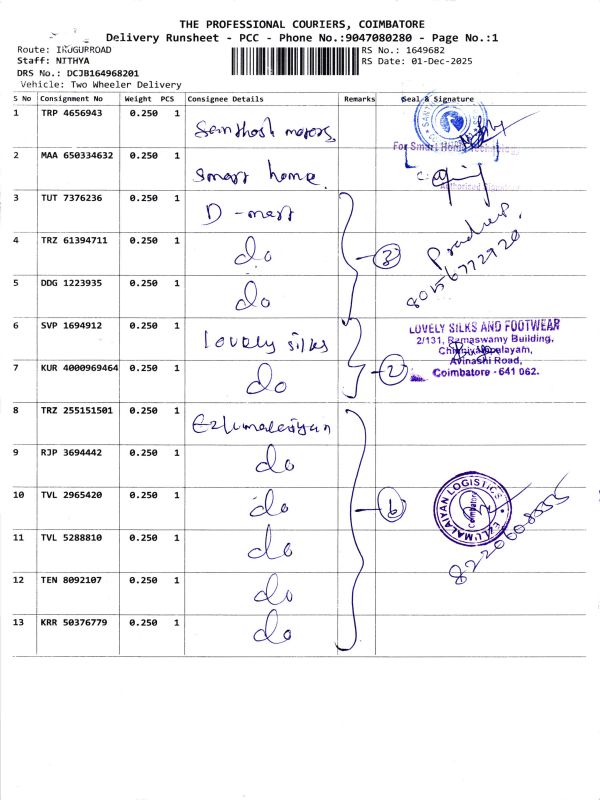 THE PROFESSIONAL COURIERS, COIMBATORE
Delivery Runsheet - PCC - Phone No.:9047080280 - Page No.:1
Route: IRUGURROAD
RS No.: 1649682
Staff: NITHYA
RS Date: 01-Dec-2025
DRS No.: DCJB164968201
Vehicle: Two Wheeler Delivery
S No Consignment No Weight PCS Consignee Details Remarks Seal & Signature
1 TRP 4656943 0.250 1 Santhosh motors
For Smart Home Technology
2 MAA 650334632 0.250 1 Smart home
Authorised Signatory
3 TUT 7376236 0.250 1 D-mart
4 TRZ 61394711 0.250 1 do 3 Pradeep
5 DDG 1223935 0.250 1 do 80156772920
6 SVP 1694912 0.250 1 lovely silks
LOVELY SILKS AND FOOTWEAR
2/131, Ramaswamy Building,
Chinniyampalayam,
Avinashi Road,
Coimbatore - 641 062.
7 KUR 4000969464 0.250 1 do 2
8 TRZ 255151501 0.250 1 Ezhumalaiyan
9 RJP 3694442 0.250 1 do
10 TVL 2965420 0.250 1 do 6
EZLUMALAIYAN LOGISTICS
Coimbatore
8220608555
11 TVL 5288810 0.250 1 do
12 TEN 8092107 0.250 1 do
13 KRR 50376779 0.250 1 do